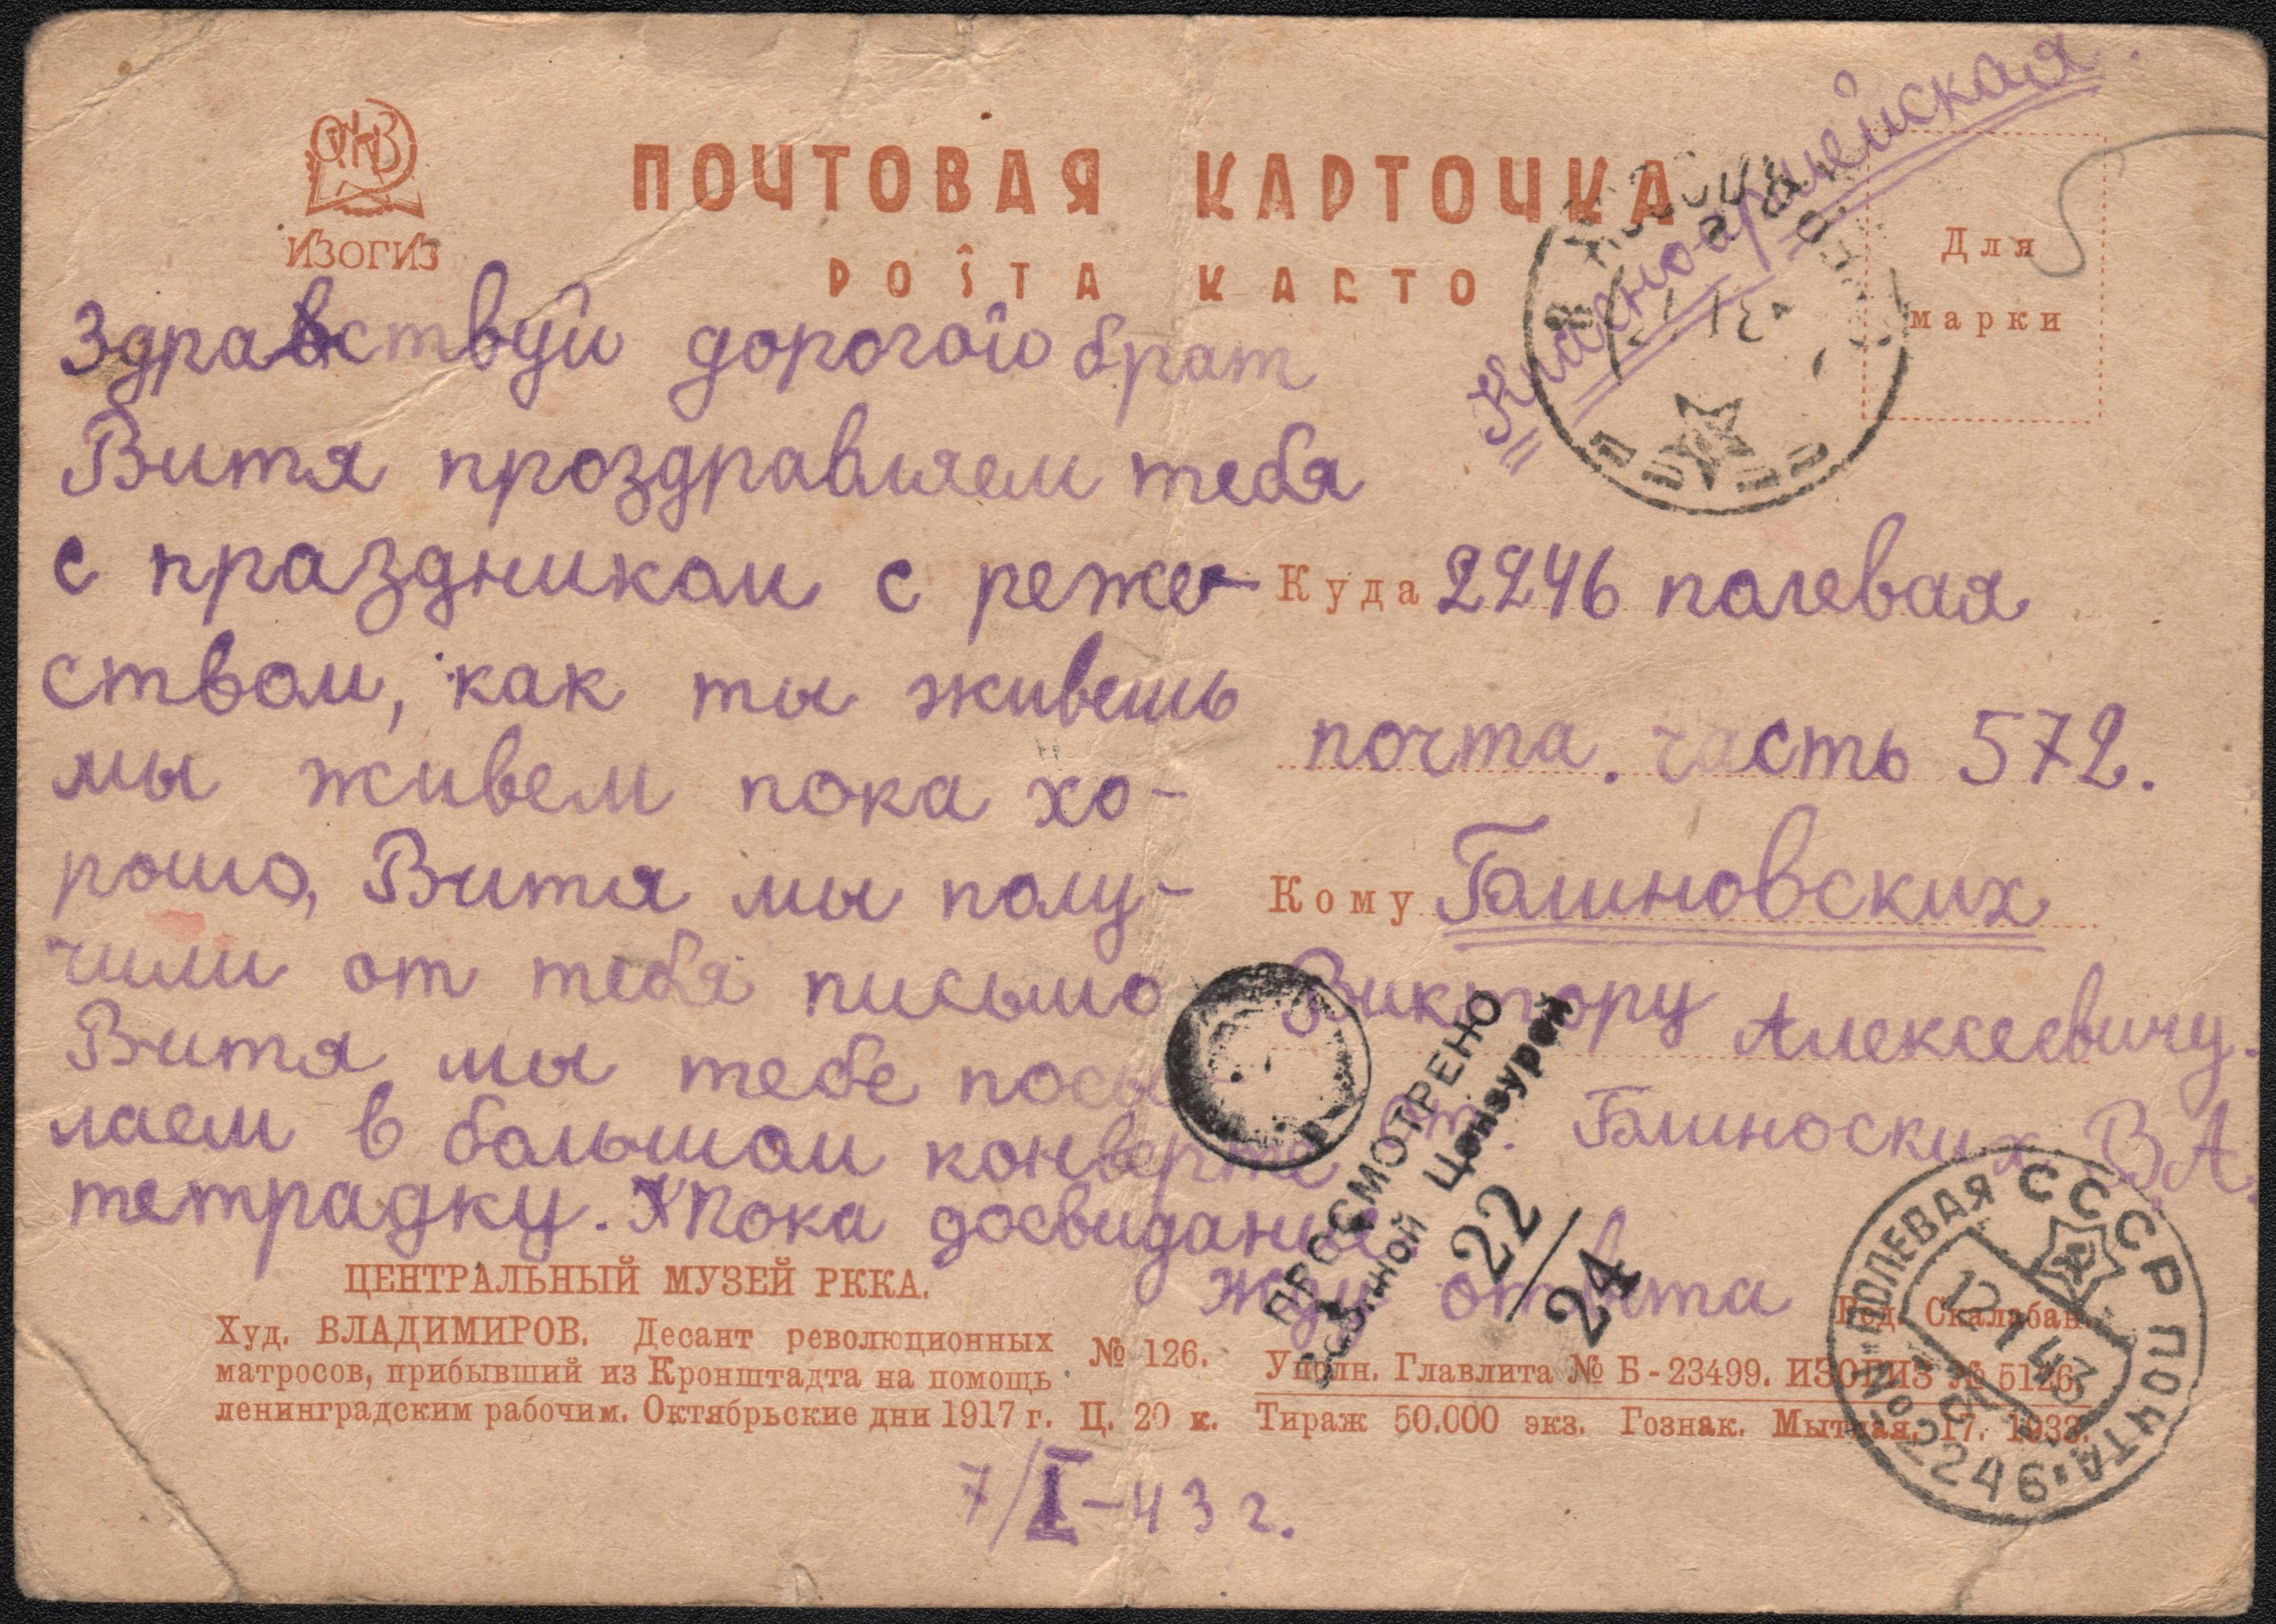 ИЗОГИЗ
ПОЧТОВАЯ КАРТОЧКА
POŜTA KARTO
Красноармейская.
Для
марки
Здравствуй дорогой брат
Витя проздравляем тебя
с праздником с реже-
ством, как ты живешь
мы живем пока хо-
рошо, Витя мы полу-
чили от тебя письмо
Витя мы тебе посы
лаем в большом конверте
тетрадку. Пока досвидание
жду ответа
Куда 2246 полевая
почта. часть 572.
Кому Блиновских
Виктору Алексеевичу.
от. Блиноских В.А.
ПРОСМОТРЕНО
Военной Цензурой
22/24
СССР ПОЛЕВАЯ ПОЧТА
12 1 43
№ 2246
ЦЕНТРАЛЬНЫЙ МУЗЕЙ РККА.
Худ. ВЛАДИМИРОВ. Десант революционных
матросов, прибывший из Кронштадта на помощь
ленинградским рабочим. Октябрьские дни 1917 г.
№ 126.
Ц. 20 к.
Ред. Скалабан.
Уполн. Главлита № Б-23499. ИЗОГИЗ № 5126.
Тираж 50.000 экз. Гознак. Мытная, 17. 1933.
7/I-43 г.